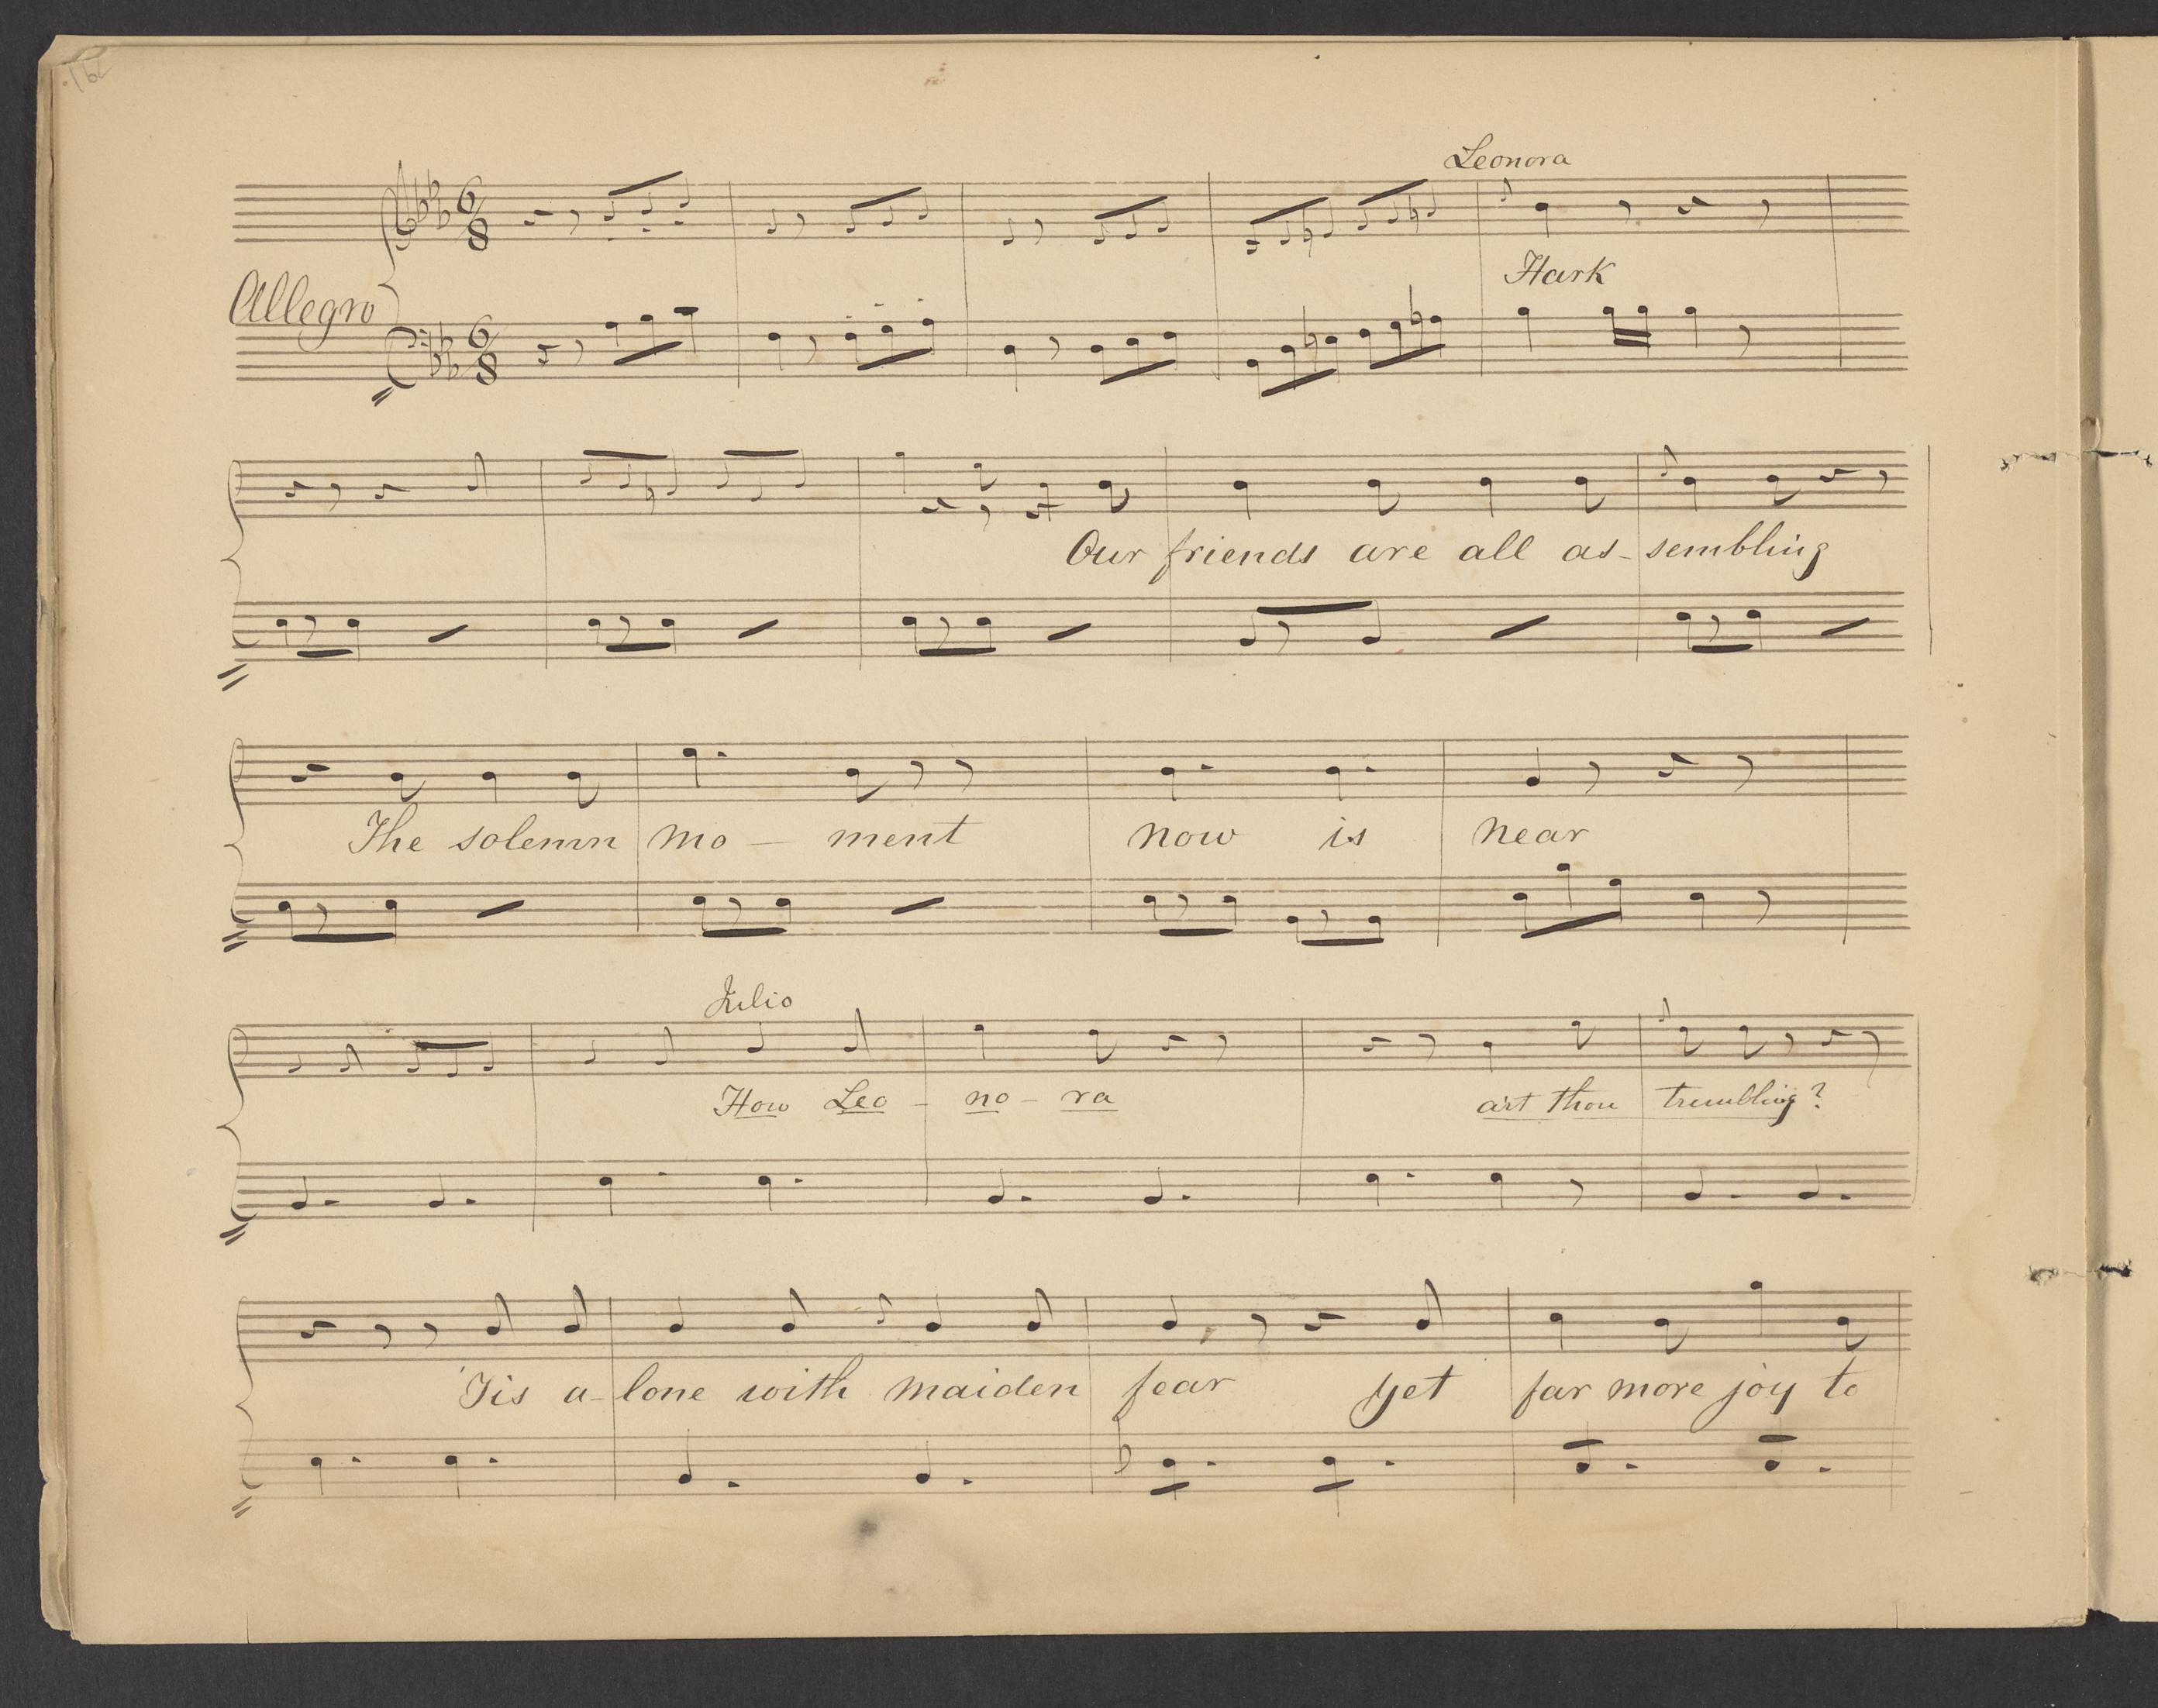 162
Leonora
Allegro
6/8
Hark
6/8
Our friends are all as-sembling
The solemn mo — ment now is near
Julio
How Leo - no - ra art thou trembling?
'Tis a-lone with maiden fear yet far more joy to